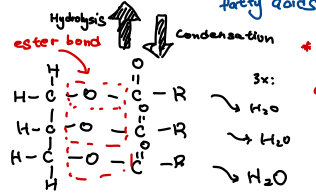 fatty acids
Hydrolysis
Condensation
ester bond
*
3x:
H O O
H - C - O - C - R
H₂O
H - C - O - C - R
O
H₂O
H - C - O - C - R
O
H₂O
H